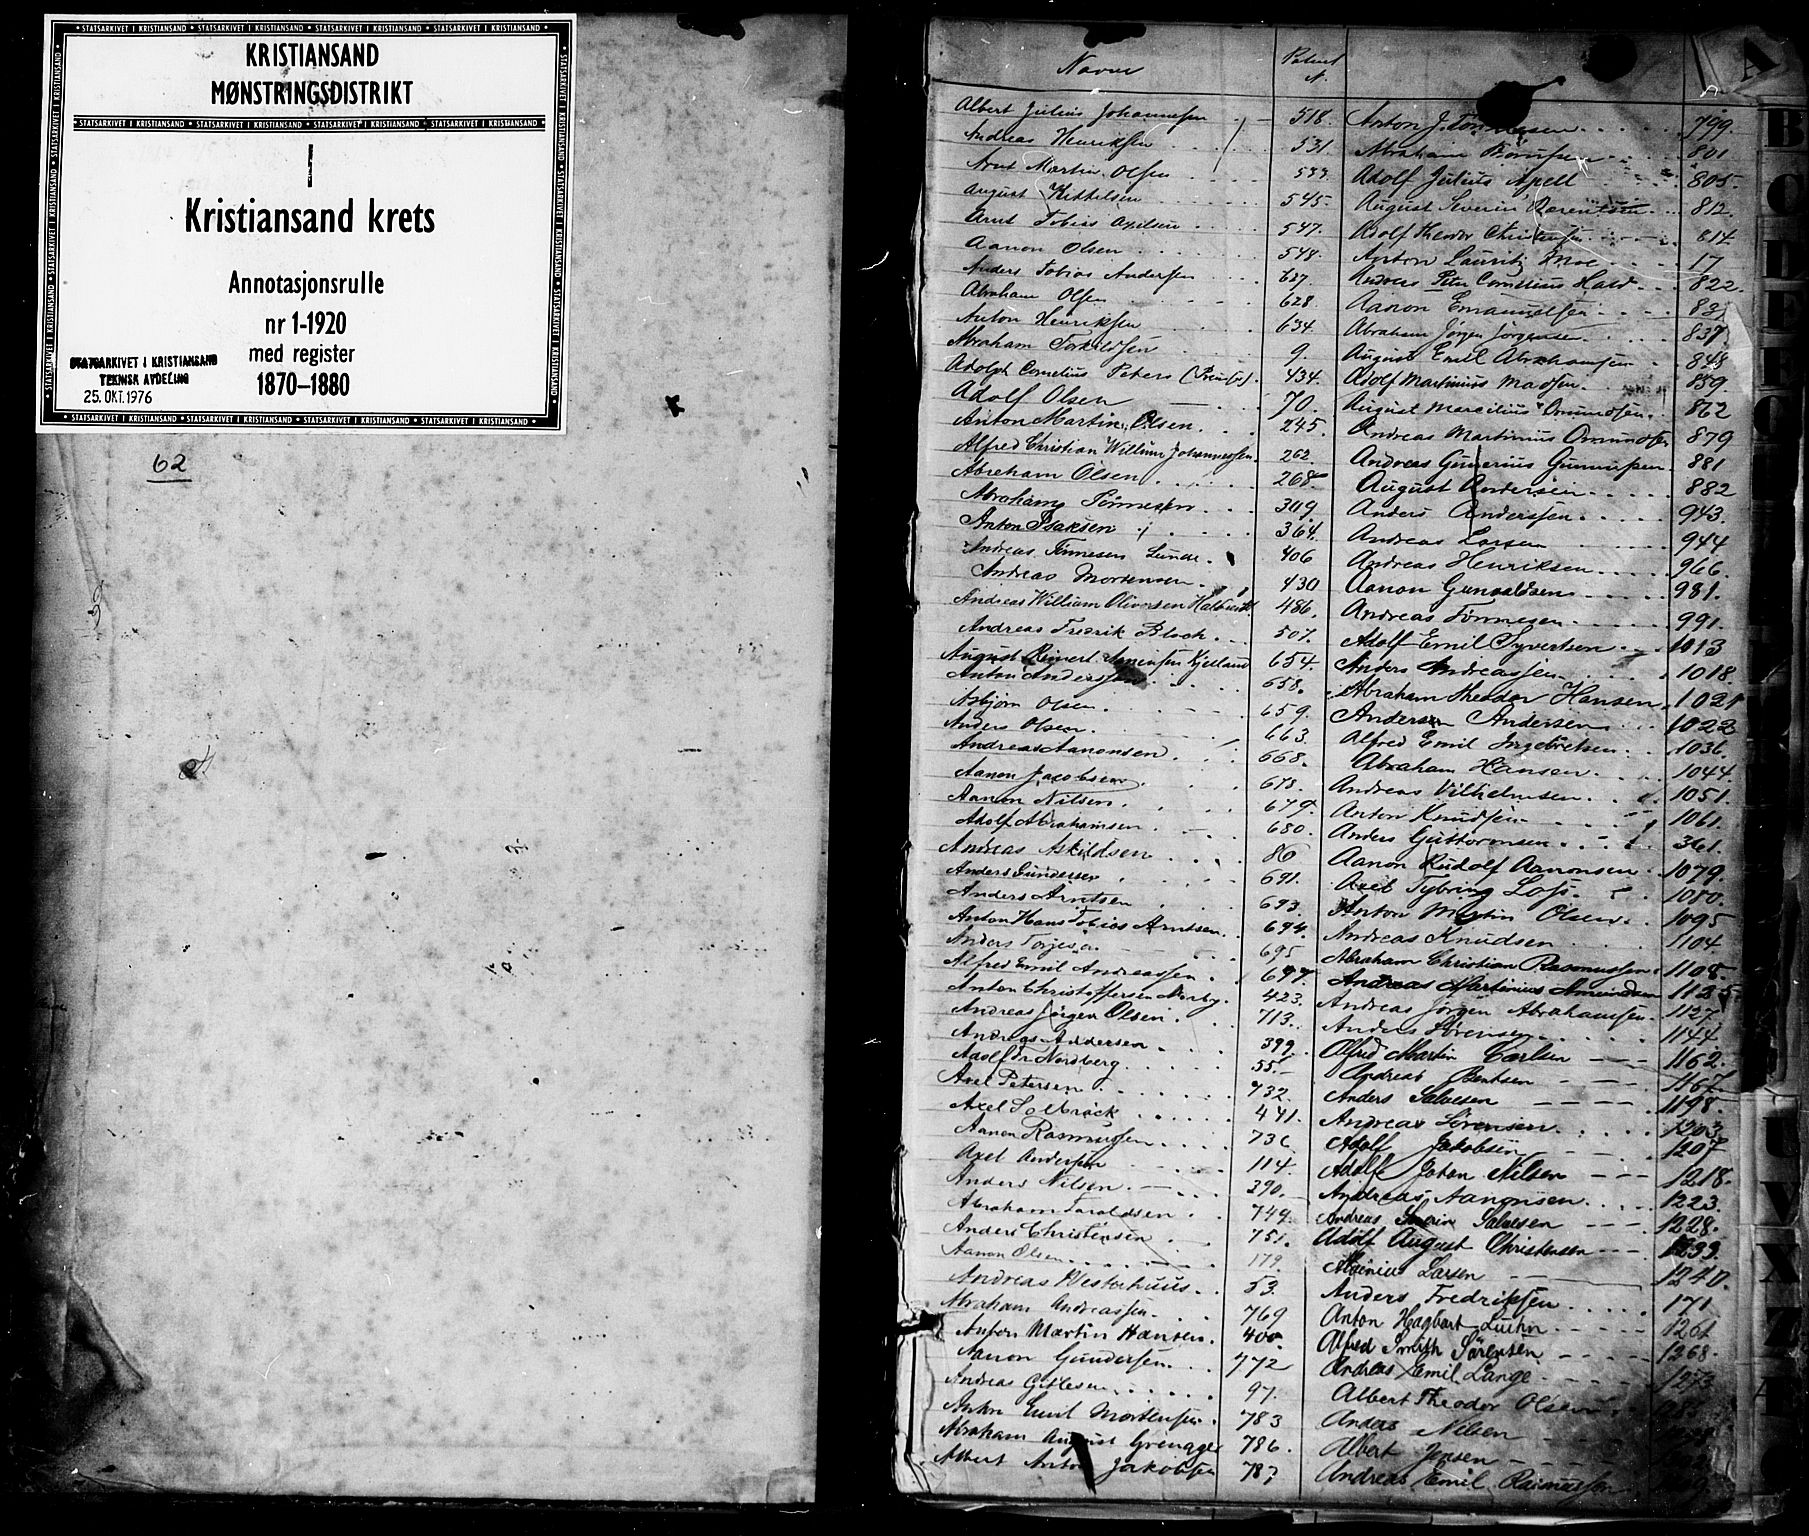 KRISTIANSAND
MØNSTRINGSDISTRIKT
I
Kristiansand krets
Annotasjonsrulle
nr 1-1920
med register
1870–1880
STATSARKIVET I KRISTIANSAND
TEKNISK AVDELING
25. OKT. 1976
62
Navne
A
Albert Julius Johannesen 518.
Andreas Henriksen 531.
Arnt Martin Olsen 533.
August Kittelsen 545.
Arnt Tobias Axelsen 547.
Aanon Olsen 548.
Anders Tobias Andersen 627.
Abraham Olsen 628
Anton Henriksen 634.
Abraham Torkildsen 9.
Adolph Cornelius Peters 434.
Adolf Olsen 70.
Anton Martin Olsen 245.
Alfred Christian Willium Johannessen 262.
Abreham Olsen 268
Abraham Tönnesen 309
Anton Isaksen 364.
Andreas Tönnesen Lunde 406
Andreas Mortensen 430
Andreas William Oliversen 486
Andreas Fredrik Bloch 507.
August Reinert Kjelland 654.
Anton Anderssen 658.
Asbjörn Olsen 659.
Anders Olsen 663.
Andreas Aanonsen 668.
Aanon Jacobsen 673.
Aanon Nilsen 679.
Adolf Abrahamsen 680.
Andreas Askildsen 86
Anders Gundersen 691.
Anders Arntsen 693.
Anton Hans Tobias Arntsen 694.
Anders 695
Alfred Emil Andreassen 697.
Anton Christoffersen 423.
Andreas Jörgen Olsen 713.
Andreas Andersen 399.
Adolf Nordberg 55.
Axel Petersen 732.
Axel Solbrock 441.
Aanon Rasmussen 736
Axel Andersen 114.
Anders Nilsen 390.
Abraham Taraldsen 749.
Anders Christensen 751.
Aanon Olsen 179.
Andreas Westerhuus 53.
Abraham Andreassen 769
Anton Martin Hansen 400
Aanon Gundersen 772
Andreas Gitlesen 97.
Anton Emil Mortensen 783
Abraham August Grengger 786.
Albert Anton Jakobsen 787
Anton J. 799.
Abraham 801
Adolf Julius Apell 805.
August Severin 812.
Adolf Theodor Christensen 814
Anton Lauritz Moe 17
Andreas Peter Cornelius Hald 822.
Aanon Emanuelsen 83
Abraham Jörgen Jörgensen 837.
August Emil Abrahamsen 848
Adolf Martinius Madsen 859
August Marcilius Omundsen 862
Andreas Martinius Omundsen 879
Andreas Gunerius Gunnufsen 881
August Andersen 882
Anders Anderssen 943.
Andreas Larsen 944
Andreas Henriksen 966.
Aanon Gunvaldsen 981.
Andreas Tönnesen 991.
Adolf Emil Syvertsen 1013
Anders Andreassen 1018.
Abraham Theodor Hansen 1021
Andersen Andersen 1022
Alfred Emil Ingebretsen 1036
Abraham Hansen 1044.
Andreas Vilhelmsen 1051.
Anton Knudsen 1061.
Anders Guttormsen 361.
Aanon Rudolf Aanonsen 1079.
Axel Tybring 1080.
Anton Martin Olsen 1095
Andreas Knudsen 1104.
Abraham Christian Rasmussen 1108.
Andreas Martinius Amundsen 1125.
Andreas Jörgen Abrahamsen 1127
Anders Sörensen 1144
Alfred Martin Carlsen 1162.
Andreas Bentsen 1167
Anders Salvesen 1198.
Andreas Sörensen 1203
Adolf Jakobsen 1207
Adolf Johan Nilsen 1218.
Andreas Aanonsen 1223.
Andreas Severin Salvesen 1228.
Adolf August Christensen 1239.
Larsen 1240.
Anders Fredriksen 171
Anton Hagbart Luehn 1261
Alfred Smith Sörensen 1268.
Andreas Emil Lange 1273
Albert Theodor Olsen
Anders Nilsen
Albert Jensen
Andreas Emil Rasmussen